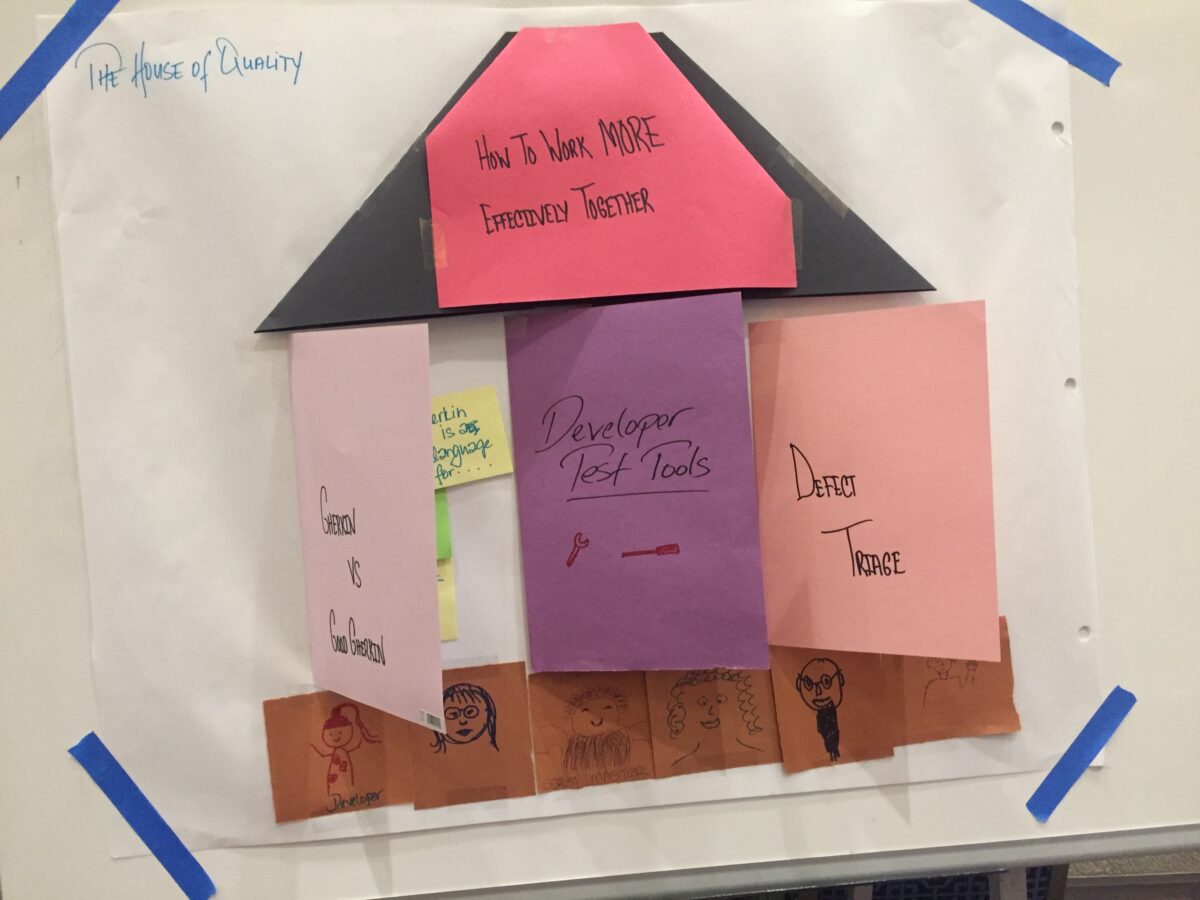 The House of Quality
How To Work MORE
Effectively Together
Gherkin
vs
Good Gherkin
erkin
is a
language
for....
Developer
Test Tools
Defect
Triage
Developer
SCRUM MASTER